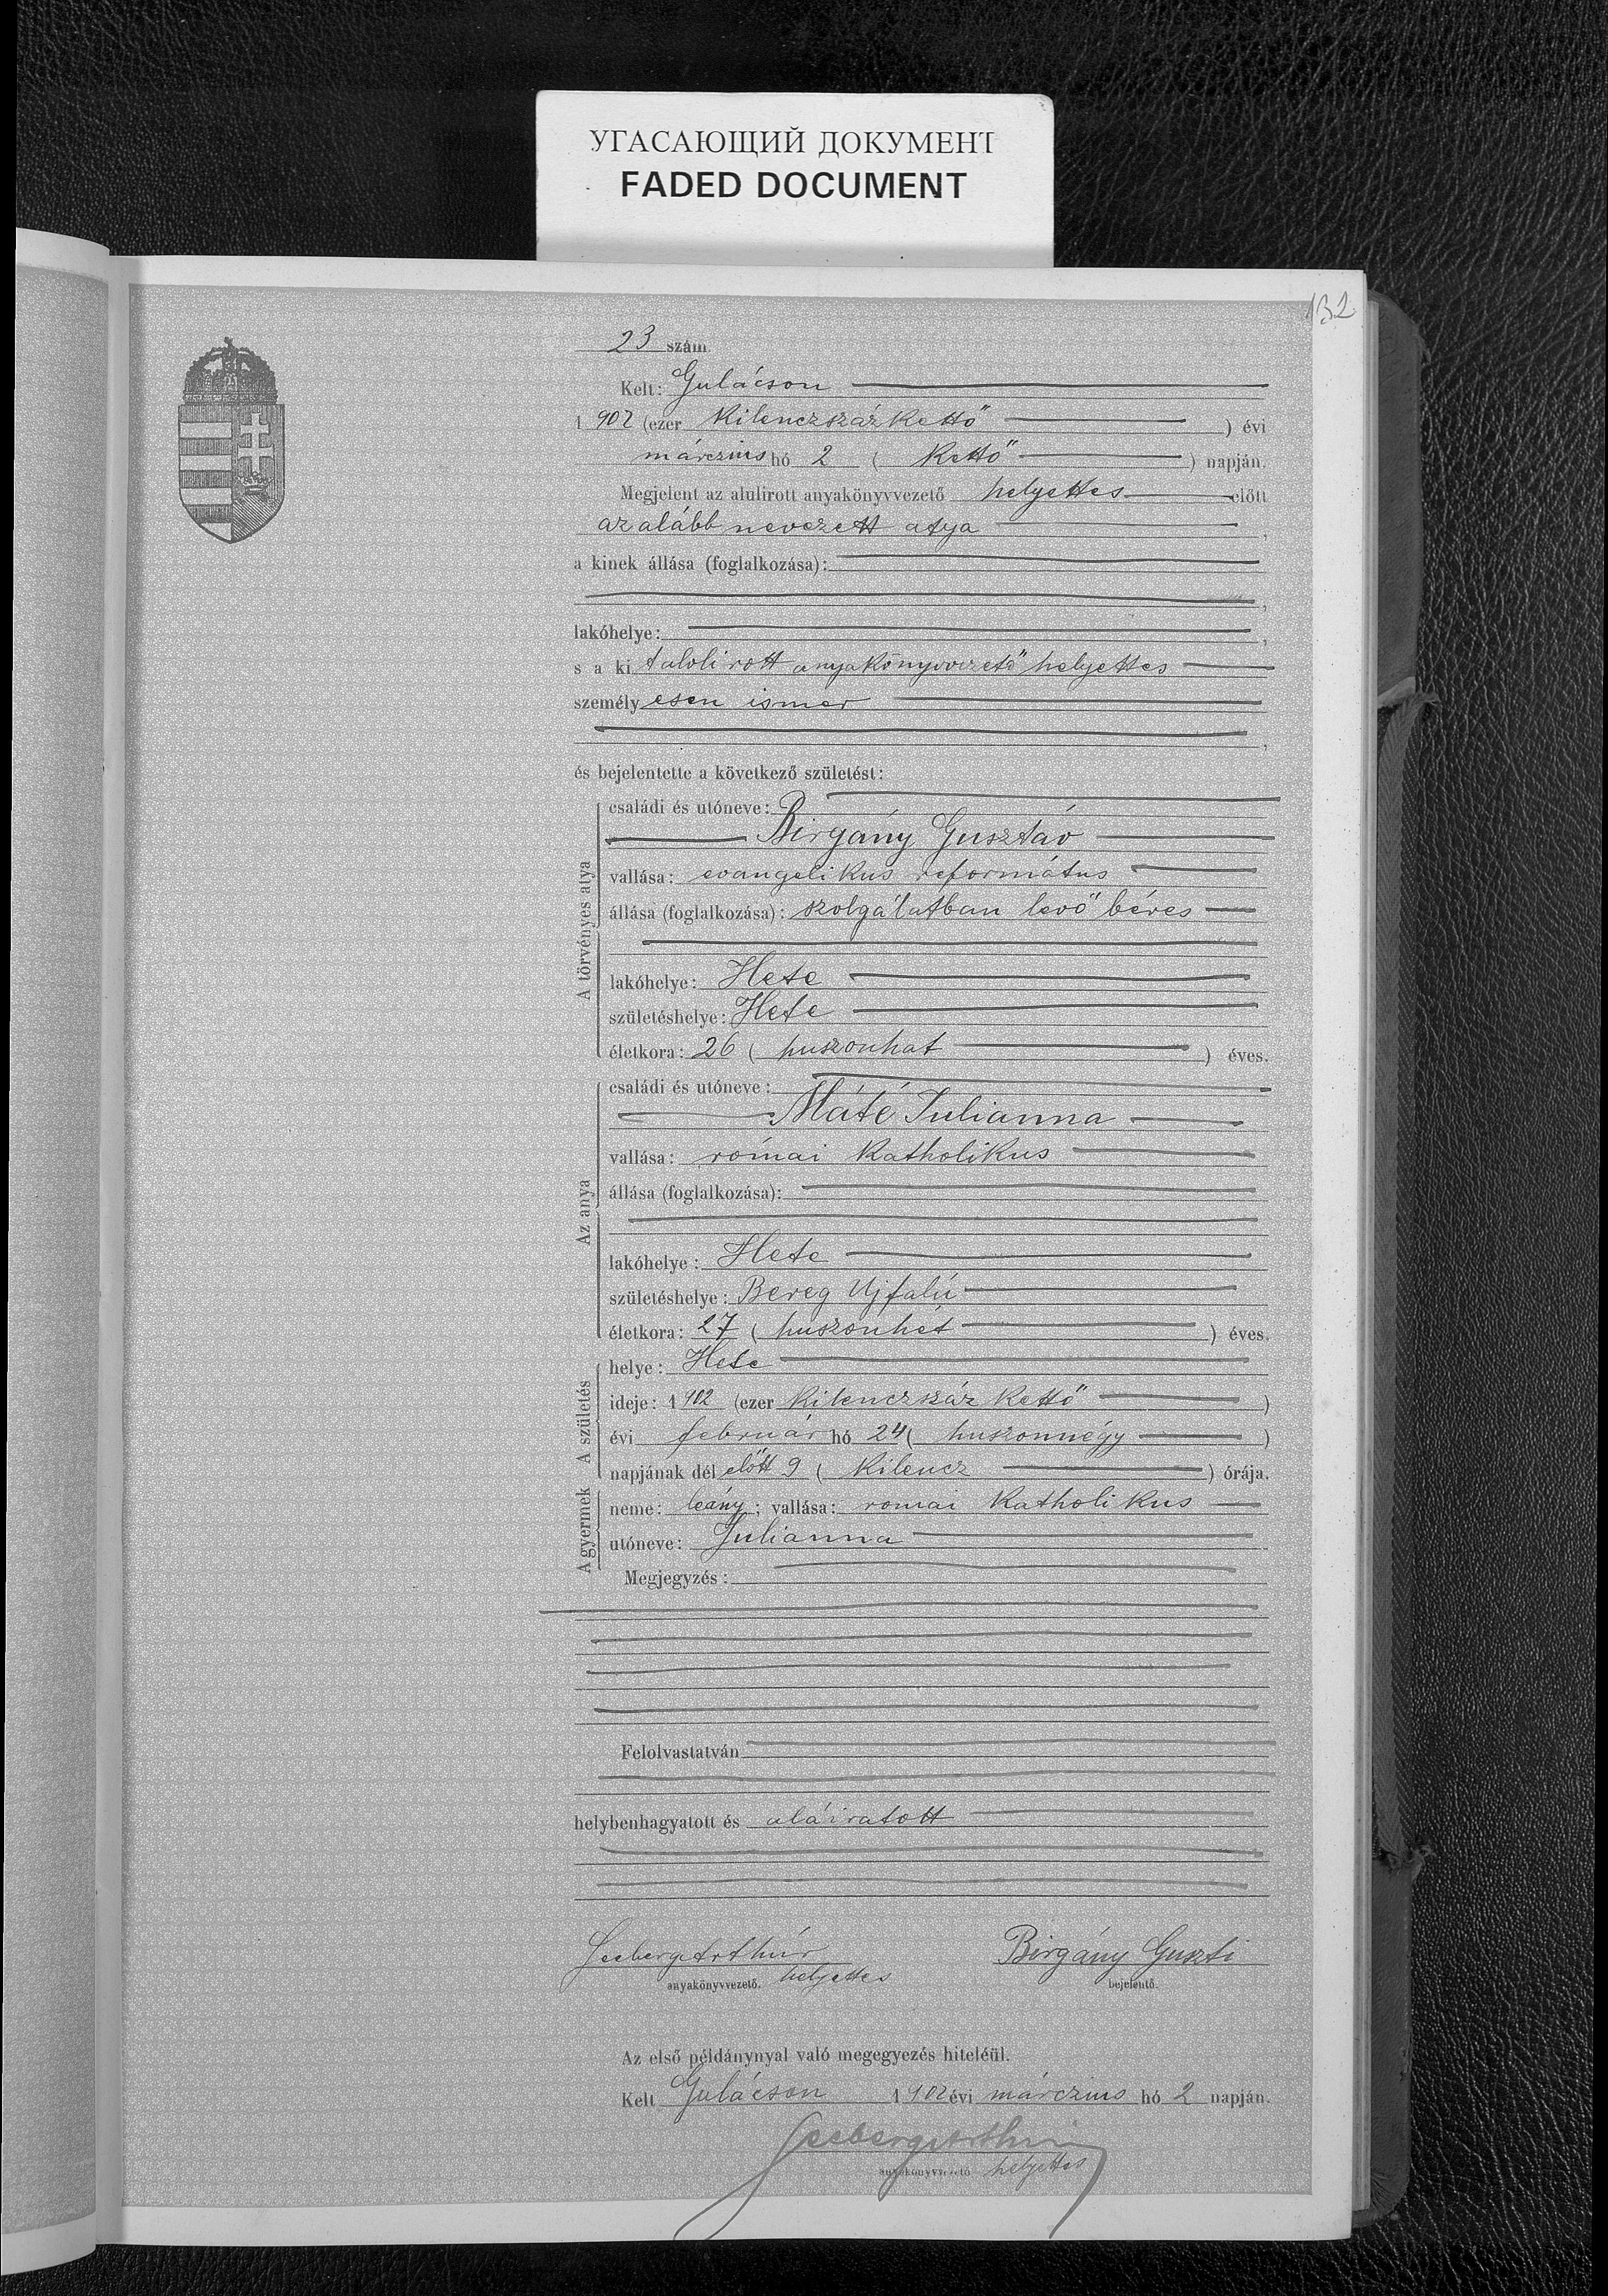 УГАСАЮЩИЙ ДОКУМЕНТ
FADED DOCUMENT
132
23 szám.
Kelt: Gulácson
1902 (ezer kilenczszázkettő) évi
márczius hó 2 (kettő) napján.
Megjelent az alulirott anyakönyvvezető helyettes előtt
az alább nevezett atya,
a kinek állása (foglalkozása):
,
lakóhelye: ,
s a ki t alolirott anyakönyvvezető helyettes
személyesen ismer
,
és bejelentette a következő születést:
A törvényes atya
családi és utóneve:
Birgány Gusztáv
vallása: evangelikus református
állása (foglalkozása): szolgálatban levő béres
lakóhelye: Hete
születéshelye: Hete
életkora: 26 (huszonhat) éves.
Az anya
családi és utóneve:
Máté Julianna
vallása: római katholikus
állása (foglalkozása):
lakóhelye: Hete
születéshelye: Bereg Ujfalú
életkora: 27 (huszonhét) éves.
A születés
helye: Hete
ideje: 1902 (ezer kilenczszáz kettő)
évi február hó 24 (huszonnégy)
napjának dél előtt 9 (kilencz) órája.
A gyermek
neme: leány; vallása: romai katholikus
utóneve: Julianna
Megjegyzés:
Felolvastatván
helybenhagyatott és aláiratott
Seeberg Arthúr Birgány Guszti
anyakönyvvezető. helyettes bejelentő.
Az első példánynyal való megegyezés hiteléül.
Kelt Gulácson 1902 évi márczius hó 2 napján.
Seeberg Arthúr
anyakönyvvezető helyettes